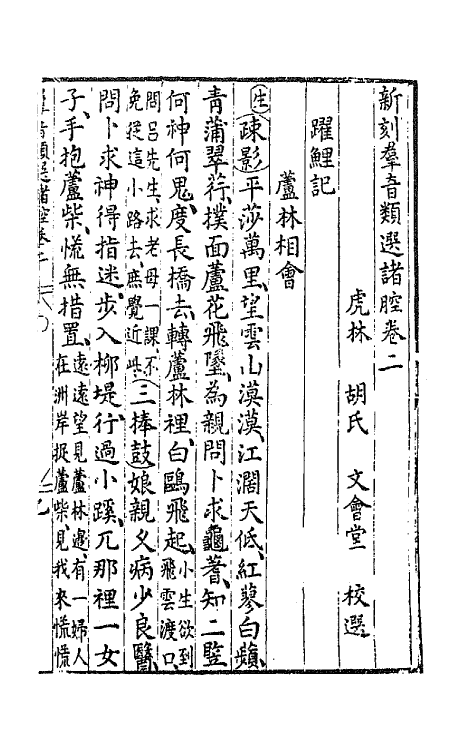 新刻羣音類選諸腔卷二
虎林　胡氏　文會堂　校選
躍鯉記
蘆林相會
生
疎影平莎萬里望雲山漠漠江濶天低紅蓼白蘋
青蒲翠荇撲面蘆花飛墜為親問卜求龜蓍知二竪
何神何鬼度長橋去轉蘆林裡白鷗飛起小生欲到飛雲渡口
問呂先生求老母一課不免從這小路去庶覺近些三捧鼓娘親乂病少良醫
問卜求神得指迷步入柳堤行過小蹊兀那裡一女
子手抱蘆柴慌無措置遠遠望見蘆林邊有一婦人在洲岸捉蘆柴見我來慌慌